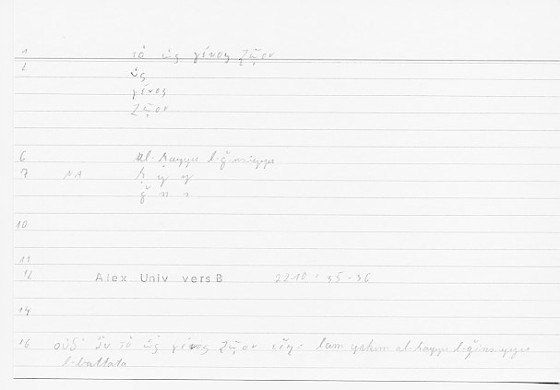 1 τὸ ὡς γένος ζῷον
2 ὡς
γένος
ζῷον
6 al-ḥayyu l-ǧinsiyyu
7 NA ḥ y y
ǧ n s
10
11
12 Alex Univ vers B 2210, 35-36
14
16 οὐδ' ἂν τὸ ὡς γένος ζῷον εἴη: lam yakun al-ḥayyu l-ǧinsiyyu
l-battata